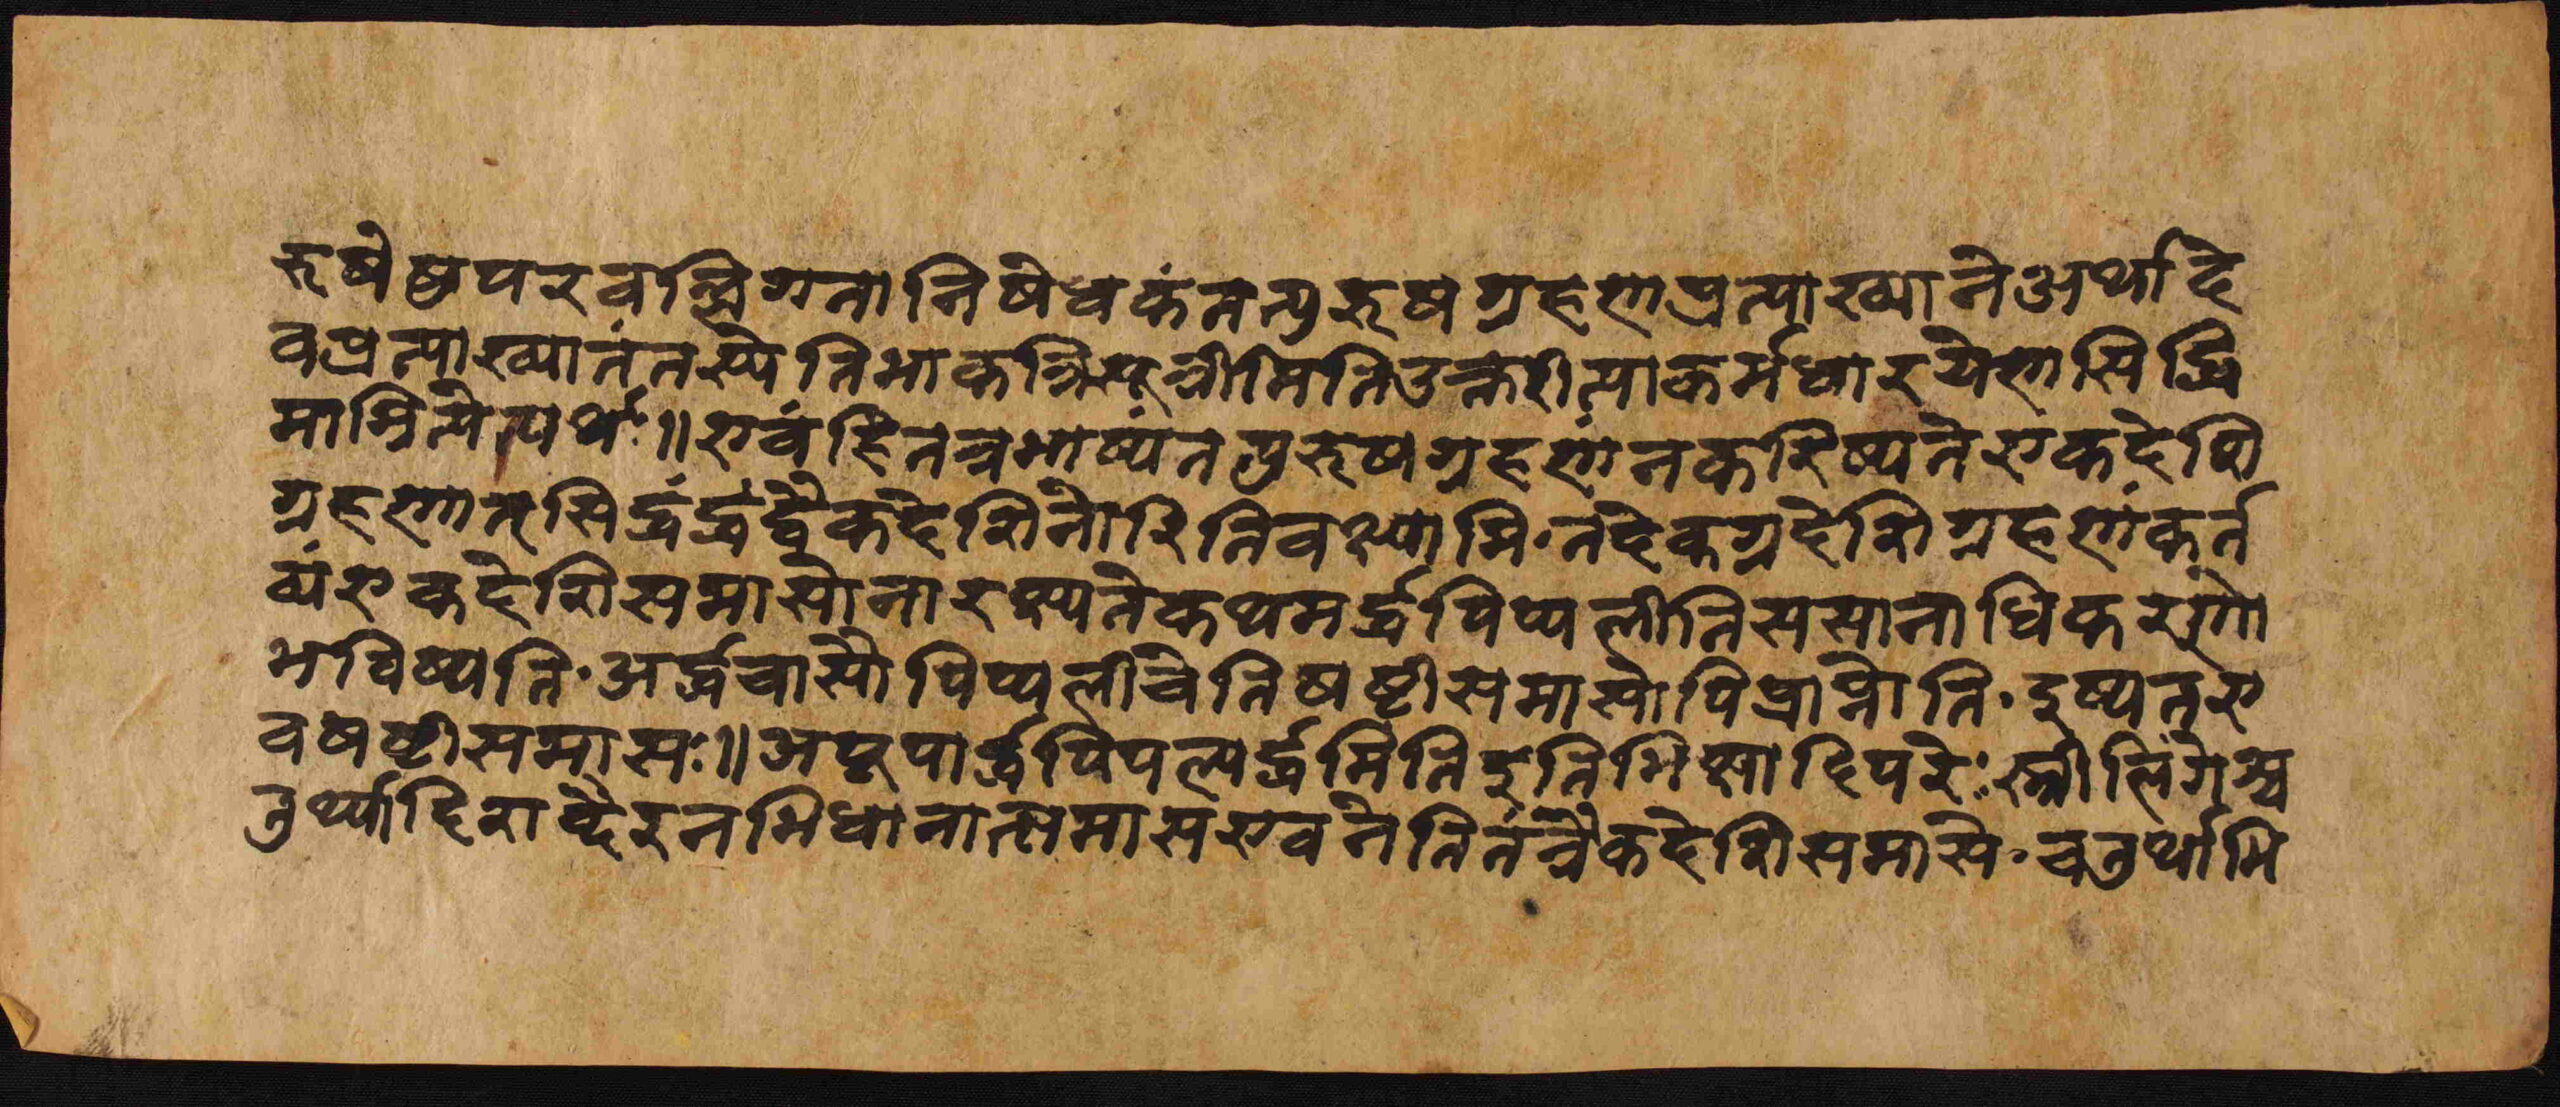 रूषेष्वपरवल्लिंगतानिषेधकंतत्पुरूषग्रहणप्रत्याख्यानेअर्थादे
वप्रत्याख्यातंतस्येतिभाकन्निसूत्रीमितिउक्तरीत्याकर्मधारयेणसिद्धि
मामित्येत्यर्थः॥एवंहितत्रभाष्यंतत्पुरूषग्रहणंनकरिष्यतेएकदेशि
ग्रहणात्सिद्धंर्द्धद्वैकदेशिनोरितिवक्ष्यामि·तदेकग्रदेशिग्रहणंकर्त
व्यंएकदेशिसमासोनारप्स्यतेकथमर्द्धपिप्पलीतिससानाधिकरणो
भविष्यति·अर्द्धचासौपिप्पलीचेतिषष्टीसमासोपिप्राप्नोति·इष्यतए
वषष्टीसमासः॥अपूपार्द्धपिपल्यर्द्धमितिइतिभिक्षादिपरेःस्त्रीलिंगेश्च
तुर्थ्यादिशब्दैरनभिधानात्समासएवनेतितंत्रैकदेशिसमासे·चतुर्थाभि